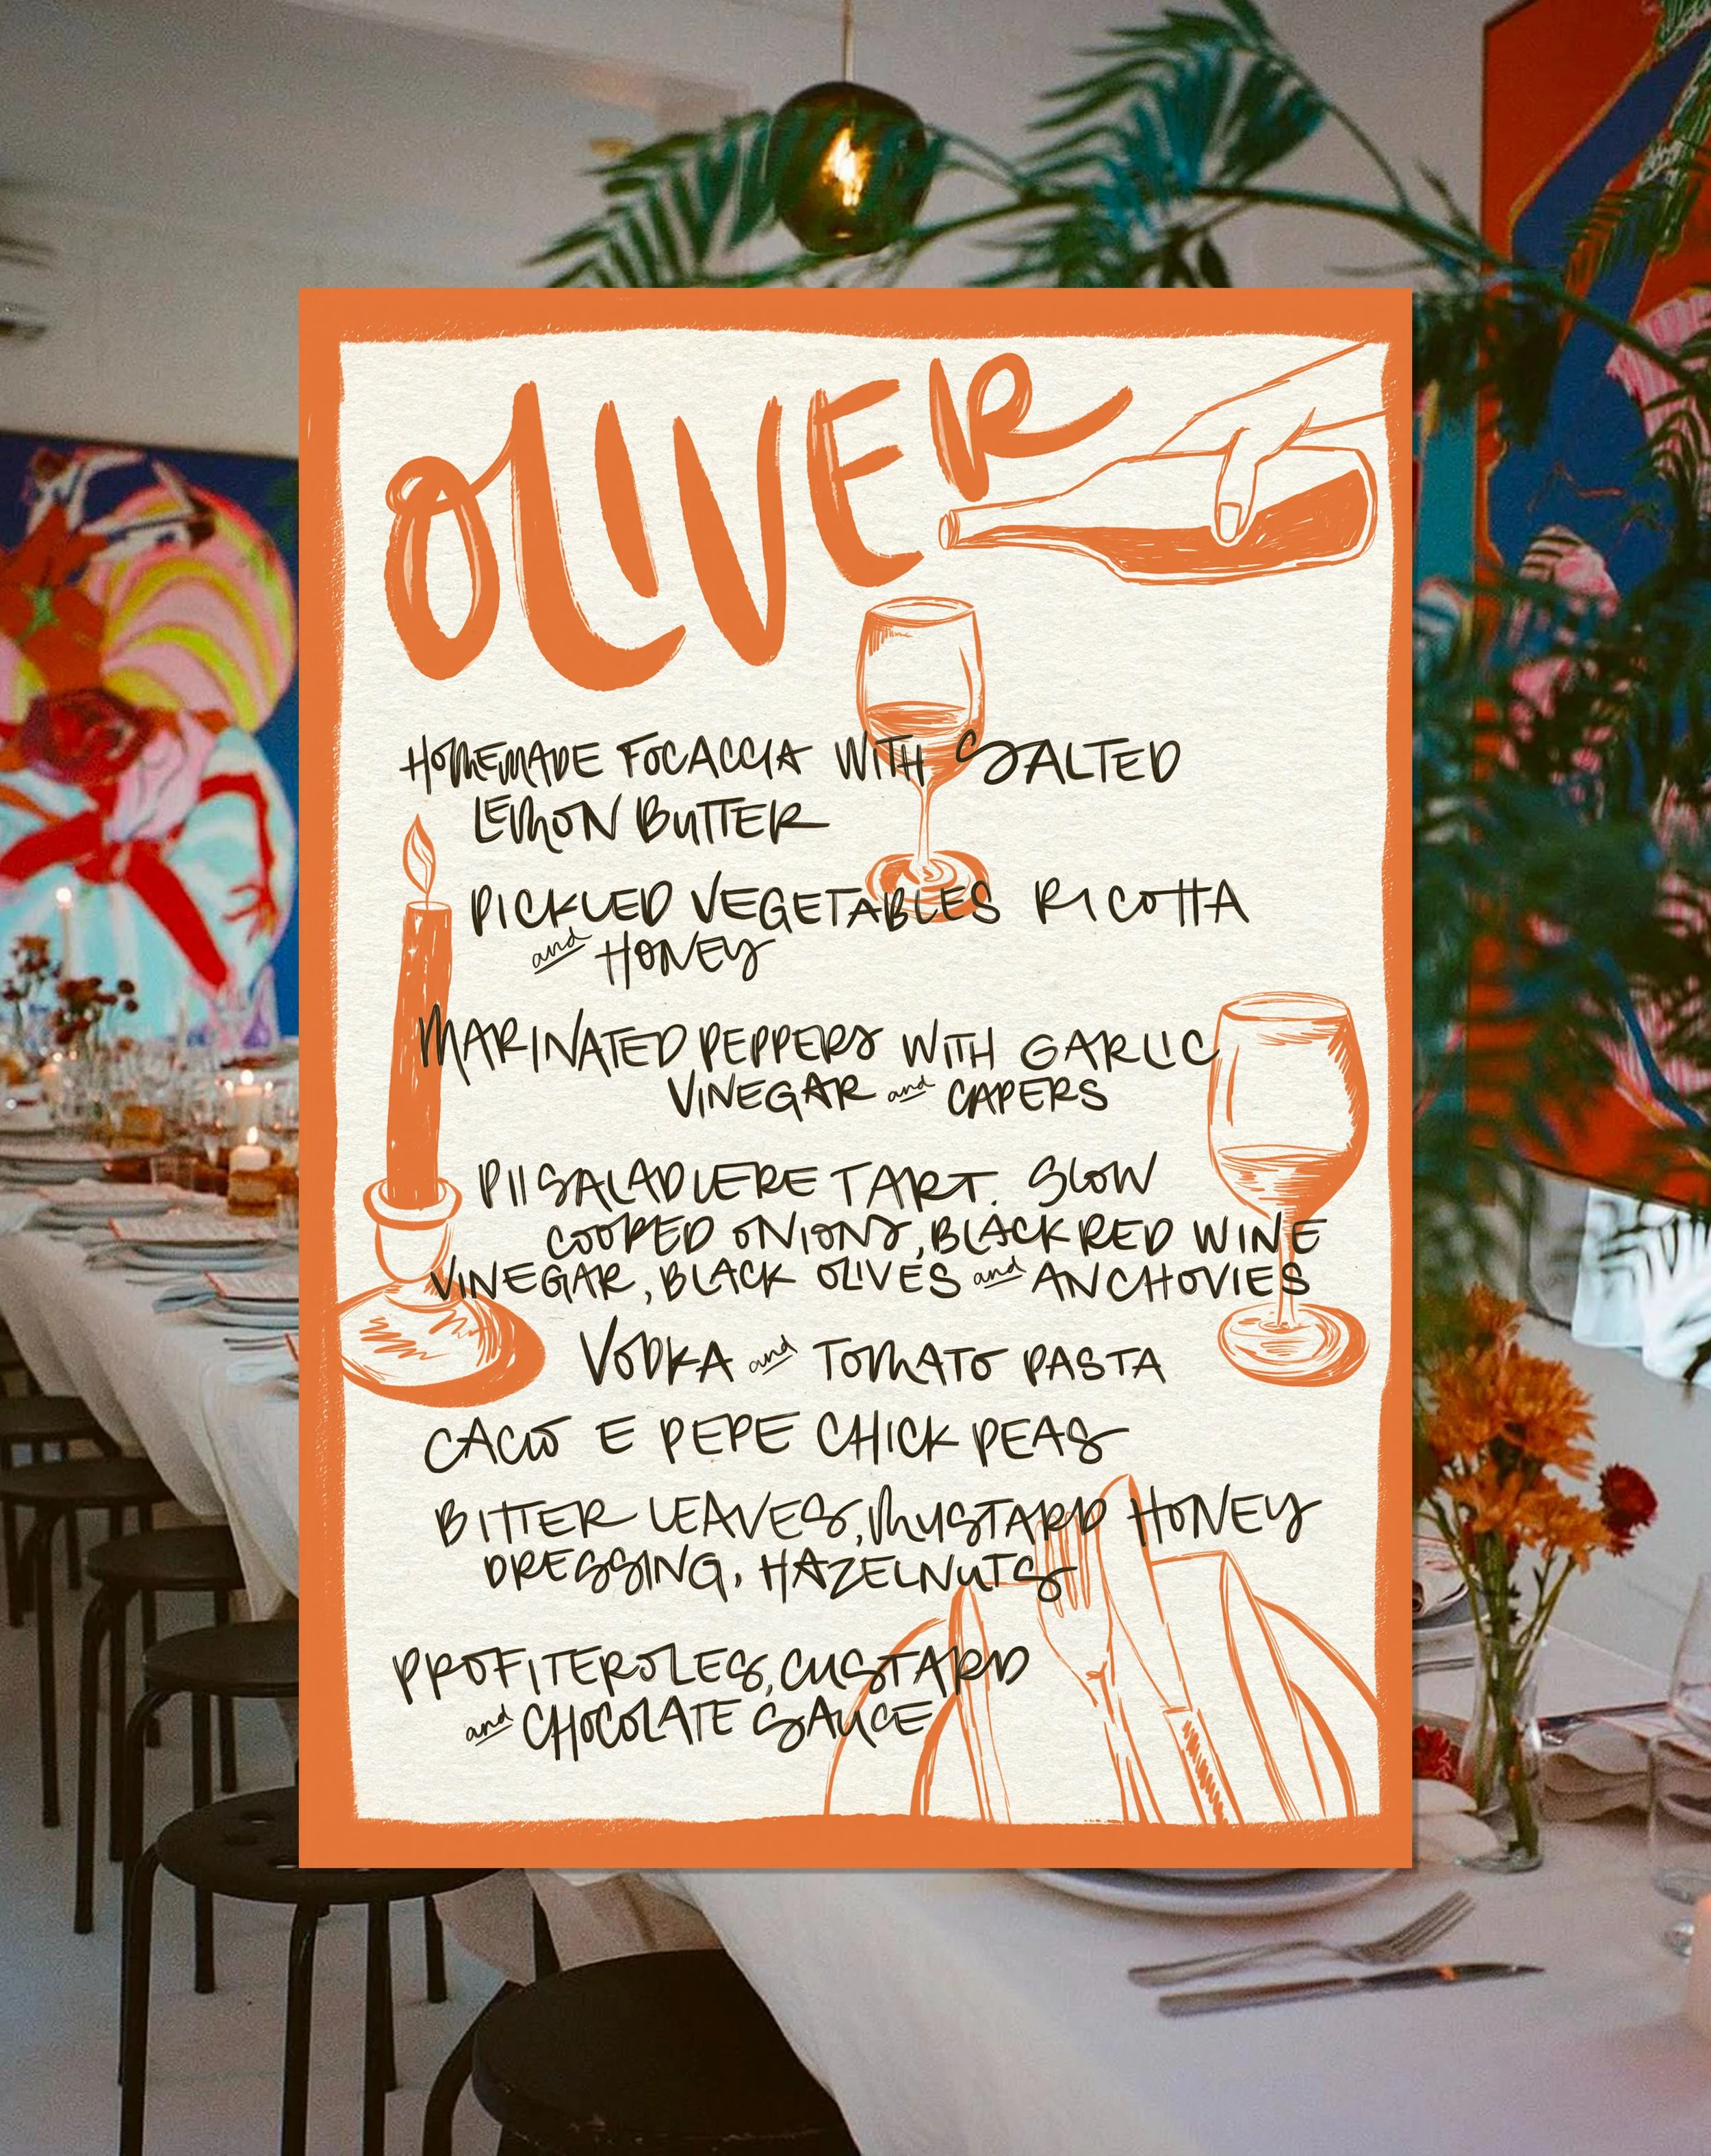 OLIVER
HOMEMADE FOCACCIA WITH SALTED
LEMON BUTTER
PICKLED VEGETABLES RICOTTA
and HONEY
MARINATED PEPPERS WITH GARLIC
VINEGAR and CAPERS
PIISALADIERE TART. SLOW
COOKED ONIONS, BLACK RED WINE
VINEGAR, BLACK OLIVES and ANCHOVIES
VODKA and TOMATO PASTA
CACIO E PEPE CHICK PEAS
BITTER LEAVES, MUSTARD HONEY
DRESSING, HAZELNUTS
PROFITEROLES, CUSTARD
and CHOCOLATE SAUCE